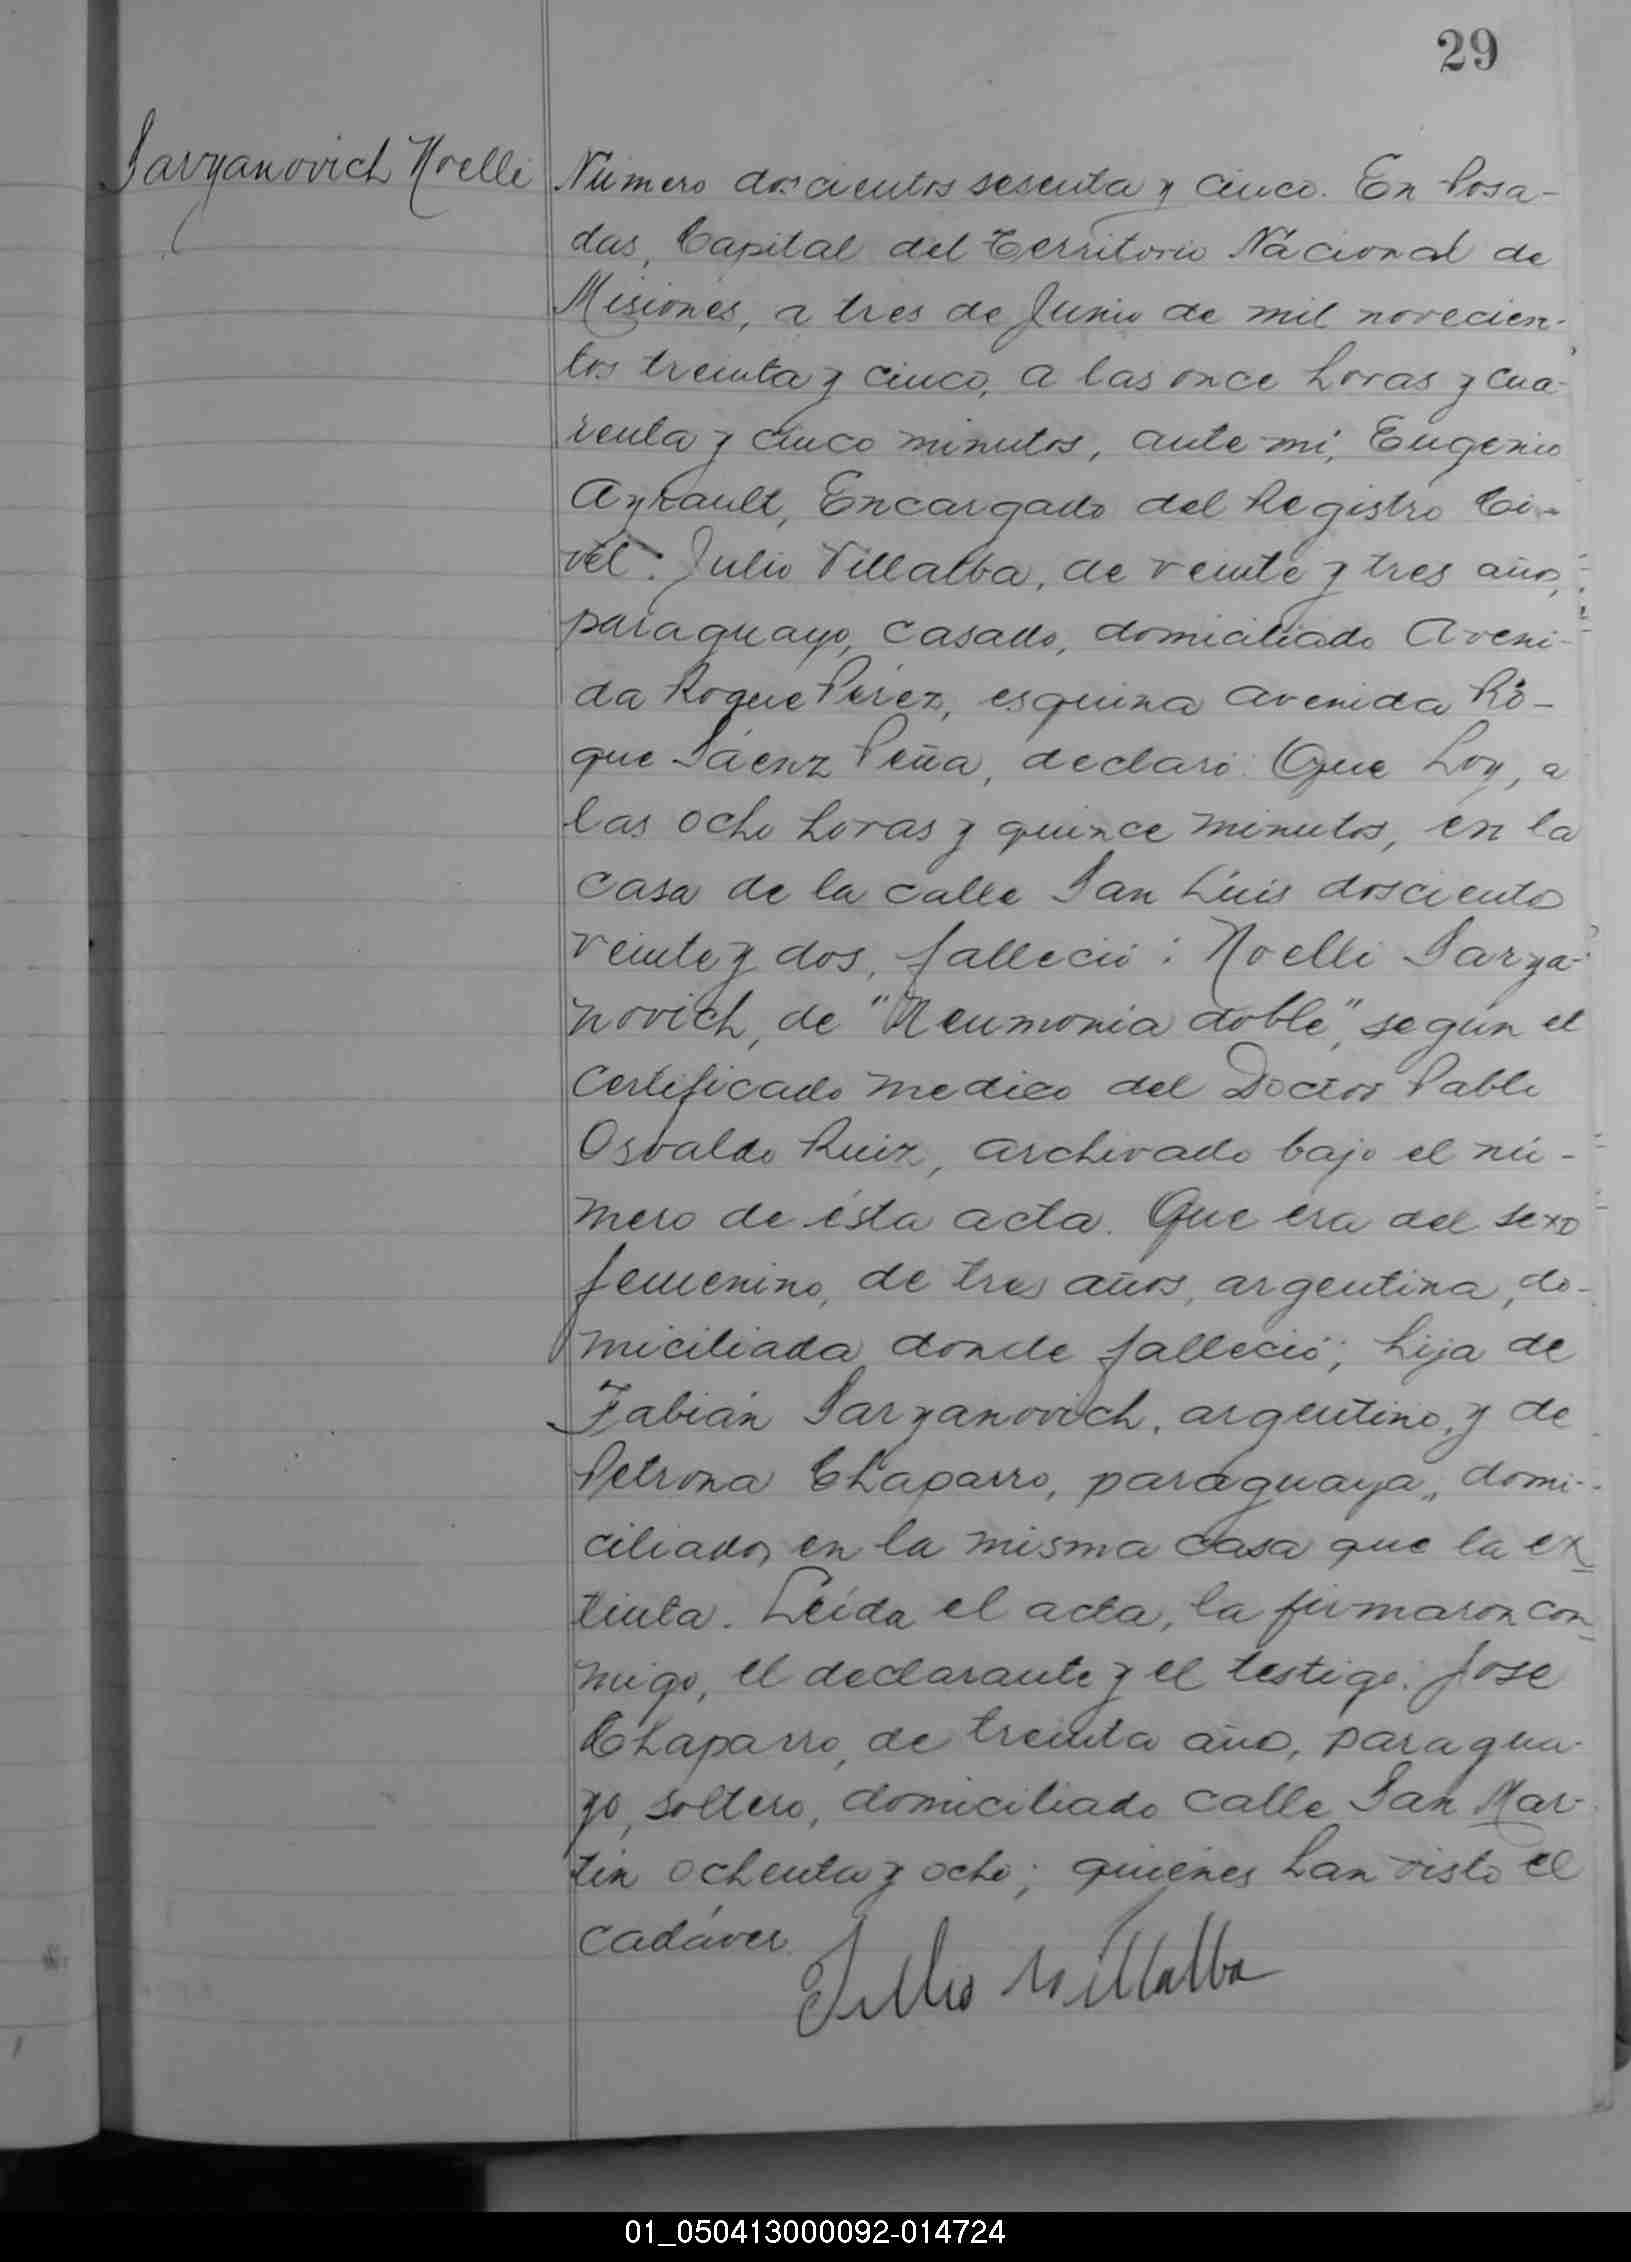 29
Saryanovich Noelli
Número doscientos sesenta y cinco. En Posa-
das, Capital del Territorio Nacional de
Misiones, a tres de Junio de mil novecien-
tos treinta y cinco, a las once horas y cua-
renta y cinco minutos, ante mí, Eugenio
Ayrault, Encargado del Registro Ci-
vil: Julio Villalba, de veinte y tres años,
paraguayo, casado, domiciliado Aveni-
da Roque Pérez, esquina avenida Ro-
que Sáenz Peña, declaró: Que hoy, a
las ocho horas y quince minutos, en la
casa de la calle San Luis doscientos
veinte y dos, falleció: Noelli Sarya-
novich, de "Neumonia doble", según el
certificado medico del Doctor Pablo
Osvaldo Ruiz, archivado bajo el nú-
mero de ésta acta. Que era del sexo
femenino, de tres años, argentina, do-
miciliada donde falleció; hija de
Fabián Saryanovich, argentino, y de
Petrona Chaparro, paraguaya, domi-
ciliados en la misma casa que la ex
tinta. Leída el acta, la firmaron con
migo, el declarante y el testigo: José
Chaparro, de treinta años, paragua-
yo, soltero, domiciliado calle San Mar-
tín ochenta y ocho; quiénes han visto el
cadáver.
Julio Villalba
01_050413000092-014724